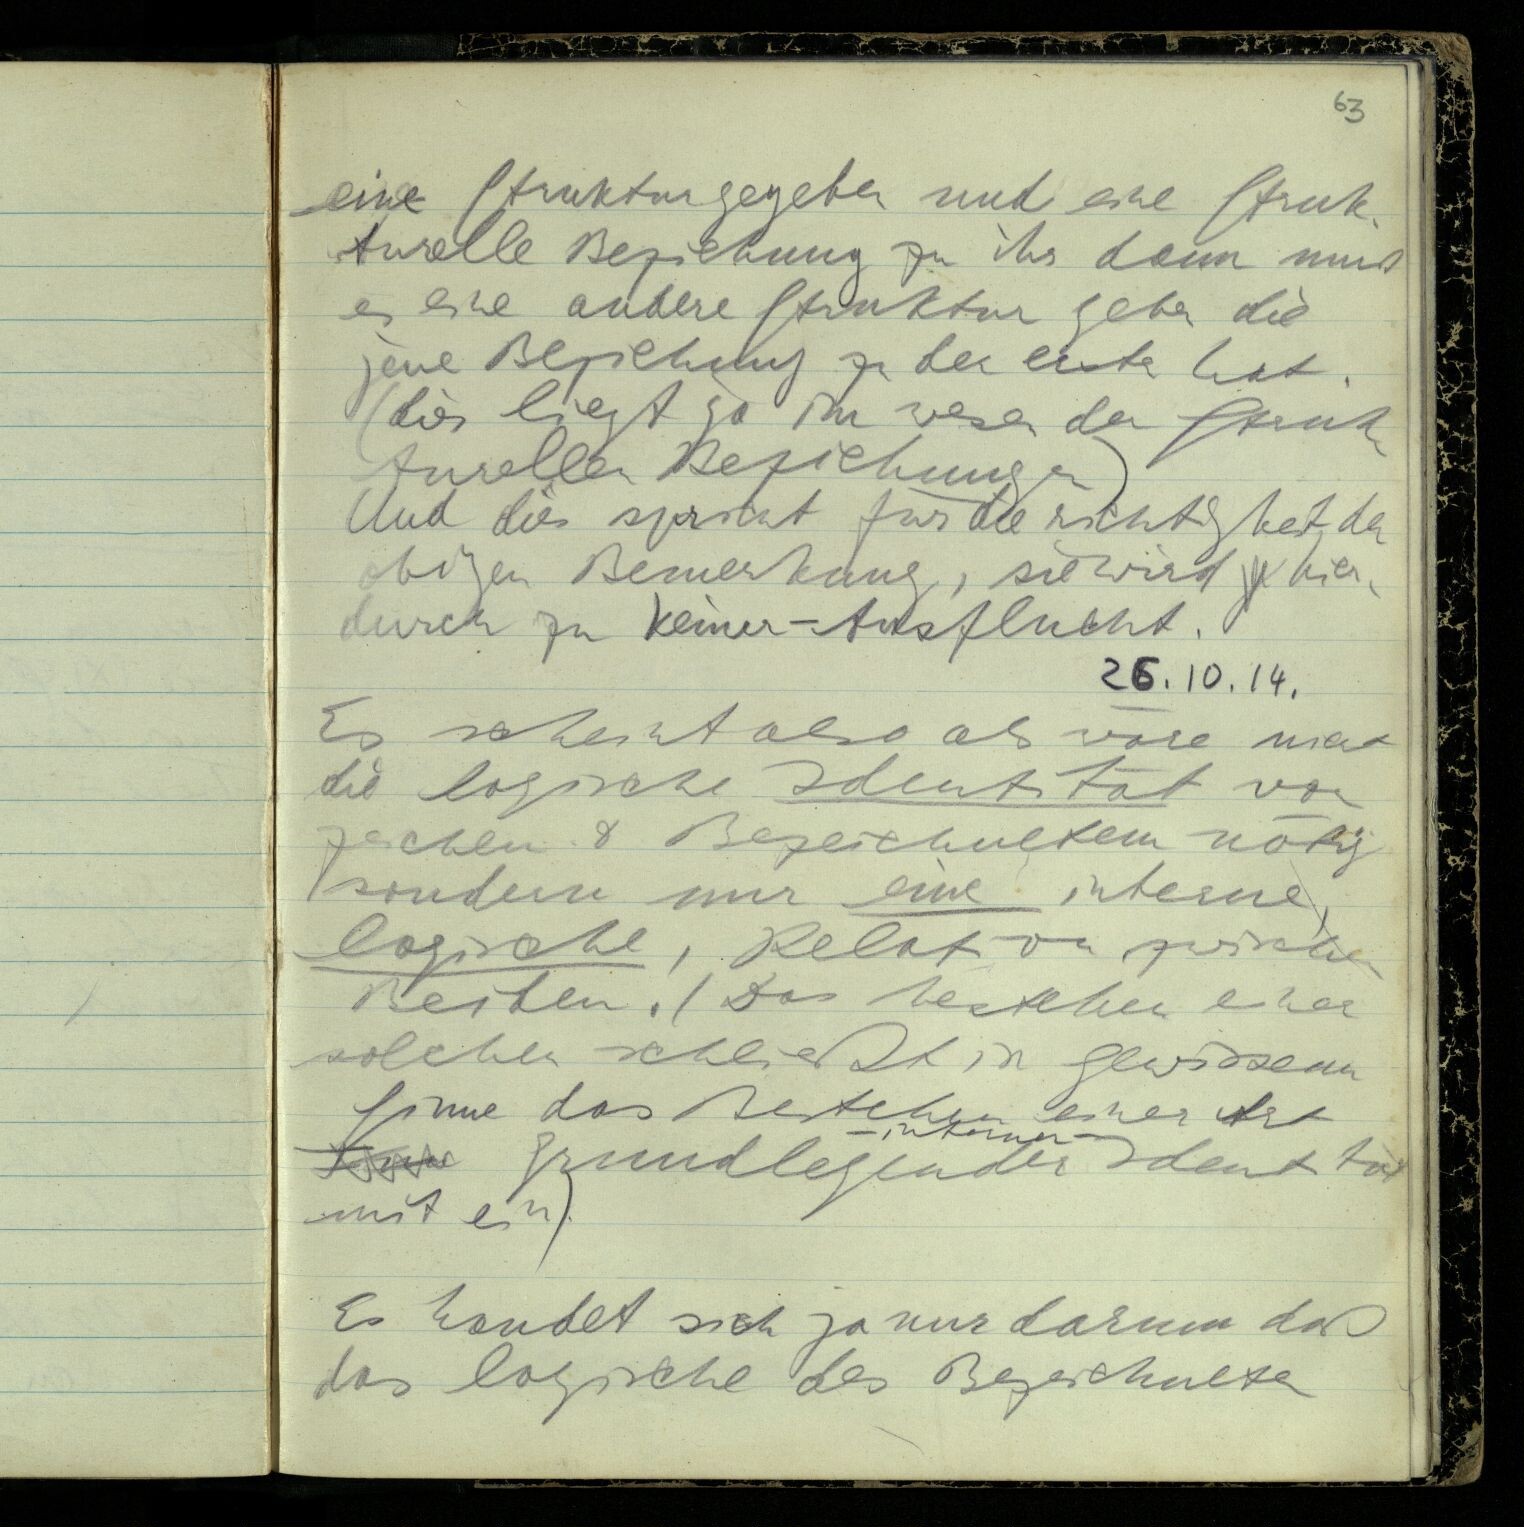 63
eine Struktur gegeben und eine Struk-
turelle Beziehung zu ihr dann muß
es eine andere Struktur geben die
jene Beziehung zu der ersten hat.
(dies liegt ja im wesen der Struk-
turellen Beziehungen)
Und dies spricht für die richtigkeit der
obigen Bemerkung, sie wird hier-
durch zu keiner - Ausflucht.
26.10.14.
Es scheint also als wäre nicht
die logische Identität von
zeichen & Bezeichnetem nötig
sondern nur eine interne,
logische, Relation zwischen
Beiden. (Das bestehen einer
solchen schließt in gewissem
Sinne das Bestehen einer Art
grundlegender - interner - Identität
mit ein).
Es handelt sich ja nur darum daß
das logische des Bezeichneten